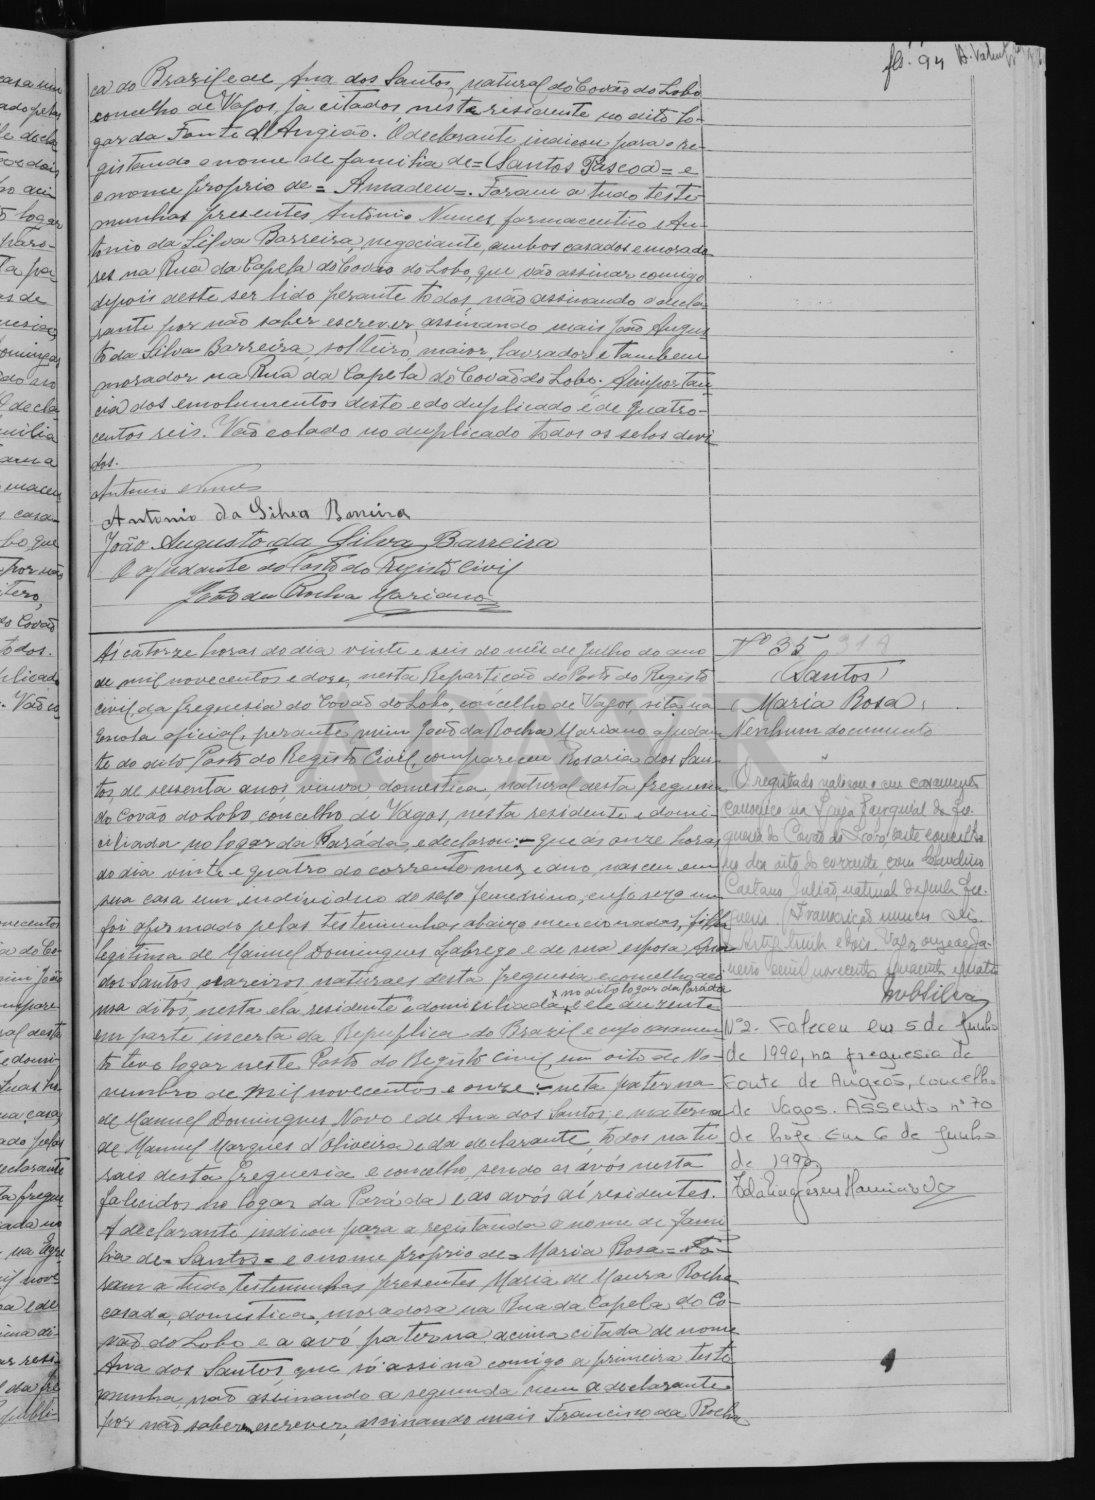 fls. 94
ca do Brazil e de Ana dos Santos, natural do Covão do Lobo
concelho de Vagos, já citados, nesta residente no dito lo-
gar da Fonte d'Angião. O declarante indicou para o re-
gistando o nome de familia de = Santos Páscoa = e
o nome proprio de = Amadeu =. Foram a tudo teste-
munhas presentes Antonio Nunes, farmaceutico e An-
tonio da Silva Barreira, negociante, ambos casados e morado-
res na Rua da Capela do Covão do Lobo, que vão assinar comigo
depois deste ser lido perante todos, não assinando o decla-
rante por não saber escrever, assinando mais João Augus-
to da Silva Barreira, solteiro, maior, lavrador e tambem
morador na Rua da Capela do Covão do Lobo. A importan-
cia dos emolumentos deste e do duplicado é de quatro-
centos reis. Vão colado no duplicado todos os selos devi-
dos.
Antonio Nunes
Antonio da Silva Barreira
João Augusto da Silva Barreira
O ajudante do Posto do Registo Civil
João da Rocha Mariano
A's catorze horas do dia vinte e seis do mês de Julho do ano
de mil novecentos e doze, nesta Repartição do Posto do Registo
civil da freguesia do Covão do Lobo, concelho de Vagos, sita na
Escola oficial, perante mim João da Rocha Mariano ajudan-
te do dito Posto do Registo Civil, compareceu Rosaria dos San-
tos, de sessenta anos, viuva, domestica, natural desta freguesia
do Covão do Lobo, concelho de Vagos, nesta residente e domi-
ciliada no logar da Paráda, e declarou: - que ás onze horas
do dia vinte e quatro do corrente mez e ano, nasceu em
sua casa um individuo do sexo femenino, cujo sexo me
foi afirmado pelas testemunhas abaixo mencionadas, filha
legitima de Manuel Domingues Labrego e de sua esposa Ana
dos Santos, seareiros naturaes desta freguesia e concelho aci-
ma ditos, nesta ela residente e domiciliada x no dito logar da Paráda e ele auzente
em parte incerta da Republica do Brazil e cujo casamen-
to teve logar neste Posto do Registo Civil, em oito de No-
vembro de mil novecentos e onze: - neta paterna
de Manuel Domingues Novo e de Ana dos Santos; e materna
de Manuel Marques d'Oliveira e da declarante, todos natu-
raes desta freguesia e concelho, sendo os avós nesta
falecidos no logar da Paráda e as avós aí residentes.
A declarante indicou para a registanda o nome de fami-
lia de = Santos = e o nome proprio de = Maria Rosa = Fo-
ram a tudo testemunhas presentes Maria de Moura Rocha
casada, domestica, moradora na Rua da Capela do Co-
vão do Lobo e a avó paterna acima citada de nome
Ana dos Santos, que só assina comigo a primeira teste-
munha, não assinando a segunda nem a declarante
por não saberem escrever, assinando mais Francisco da Rocha
Nº 35 319
(Santos)
(Maria Rosa)
Nenhum documento
O registado celebrou o seu casamento
canonico na Igreja Paroquial da fre-
guesia do Covão do Lobo, deste concelho
no dia oito do corrente, com
Caetano Julião, natural daquela fre-
guesia. (Transcrição numero
trinta e dois. Vagos, onze de Ja-
neiro de mil novecentos quarenta e quatro
Nº2. Faleceu em 5 de Junho
de 1990, na freguesia de
Fonte de Angeão, concelho
de Vagos. Assento nº 70
de hoje. Em 6 de Junho
de 1990